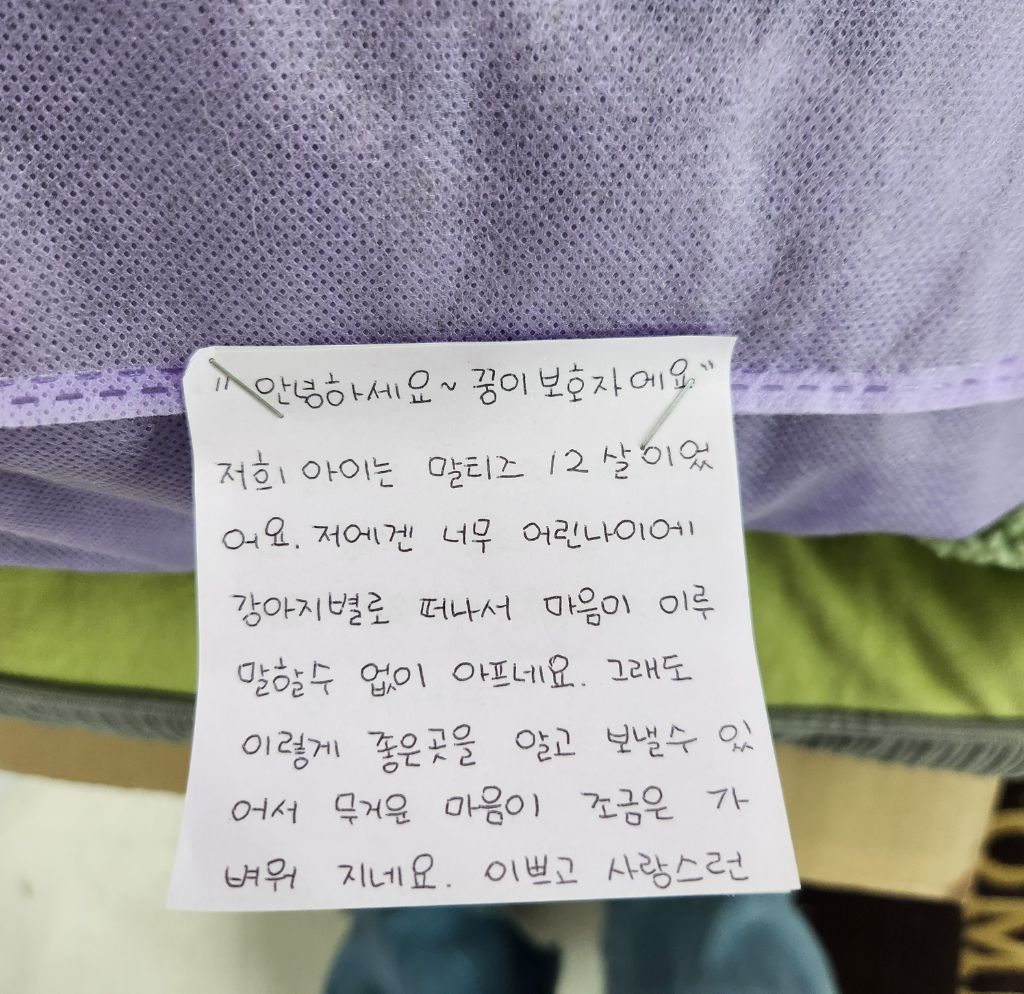 "안녕하세요~ 꿍이보호자에요"
저희 아이는 말티즈 12살이었
어요. 저에겐 너무 어린나이에
강아지별로 떠나서 마음이 이루
말할수 없이 아프네요. 그래도
이렇게 좋은곳을 알고 보낼수 있
어서 무거운 마음이 조금은 가
벼워 지네요. 이쁘고 사랑스런